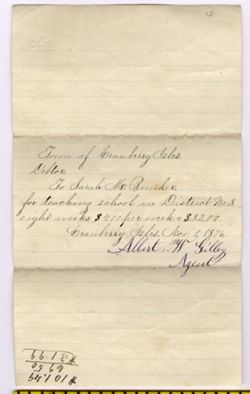 12
Town of Cranberry Isles
Debtor
To Sarah M. Bunker
for teaching school in District No. 3
eight weeks $4.00 per week = $32.00
Cranberry Isles, Nov. 1, 1876
Albert W Gilley
Agent
$31.99
69.50
$101.49